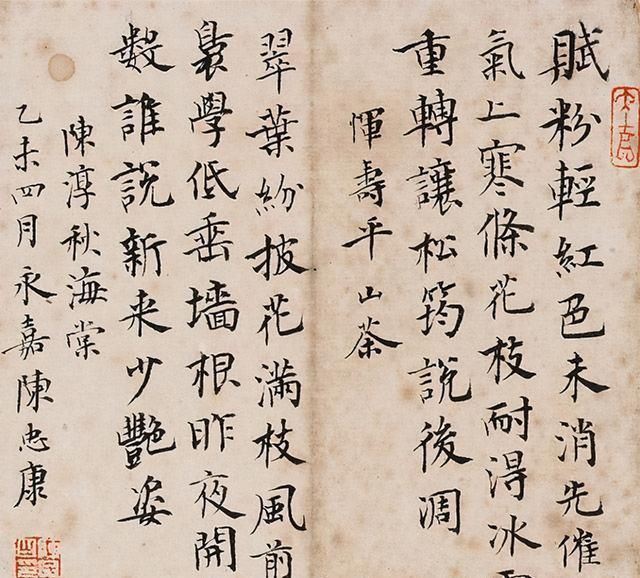 賦粉輕紅色未消先催
氣上寒條花枝耐得冰
重轉讓松筠說後凋
惲壽平山茶
翠葉紛披花滿枝風前
裊學低垂墻根昨夜開
數誰說新来少豔姿
陳淳秋海棠
乙未四月永嘉陳忠康